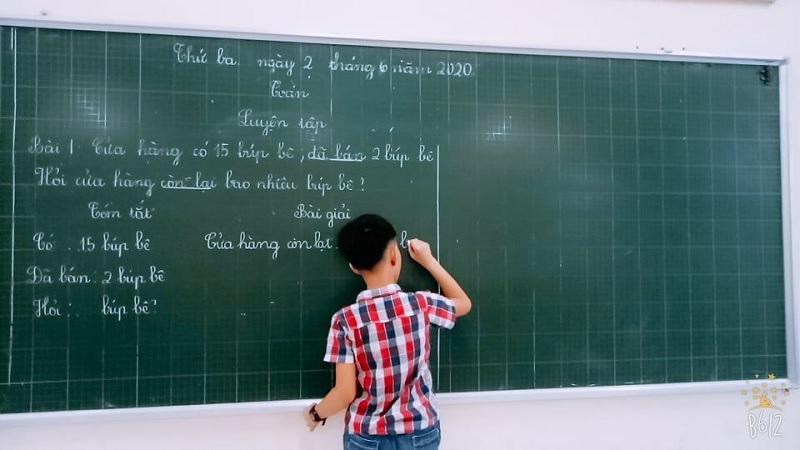 Thứ ba ngày 2 tháng 6 năm 2020
Toán
Luyện tập
Bài 1. Cửa hàng có 15 búp bê, đã bán 2 búp bê
Hỏi cửa hàng còn lại bao nhiêu búp bê?
Tóm tắt
Bài giải
Có : 15 búp bê
Cửa hàng còn lại
Đã bán: 2 búp bê
Hỏi : búp bê?
B612